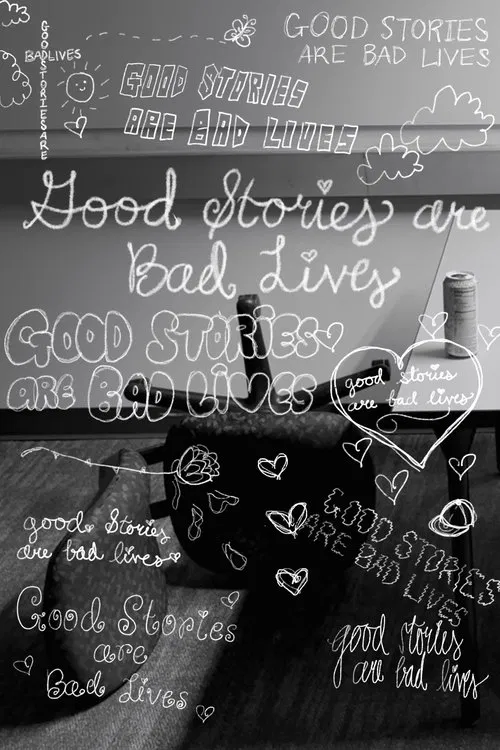 GOODSTORIESARE
BADLIVES
GOOD STORIES
ARE BAD LIVES
GOOD STORIES
ARE BAD LIVES
Good Stories are
Bad Lives
GOOD STORIES
ARE BAD LIVES
good stories
are bad lives
good Stories
are bad lives
GOOD STORIES
ARE BAD LIVES
Good Stories
are
Bad Lives
good stories
are bad lives